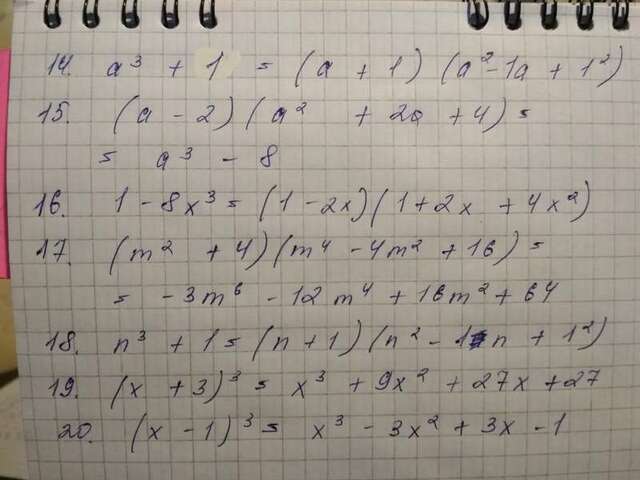 14. a³ + 1 = (a + 1) (a² - 1a + 1²)
15. (a - 2) (a² + 2a + 4) =
= a³ - 8
16. 1 - 8x³ = (1 - 2x) (1 + 2x + 4x²)
17. (m² + 4) (m⁴ - 4m² + 16) =
= -3m⁶ - 12m⁴ + 16m² + 64
18. n³ + 1 = (n + 1) (n² - 1n + 1²)
19. (x + 3)³ = x³ + 9x² + 27x + 27
20. (x - 1)³ = x³ - 3x² + 3x - 1